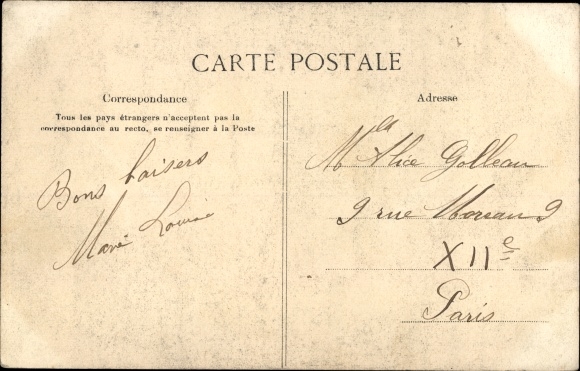 CARTE POSTALE
Correspondance
Tous les pays étrangers n'acceptent pas la
correspondance au recto, se renseigner à la Poste
Bons baisers
Marie Louise
Adresse
Mlle Alice Golleau
9 rue Moreau 9
XIIe
Paris